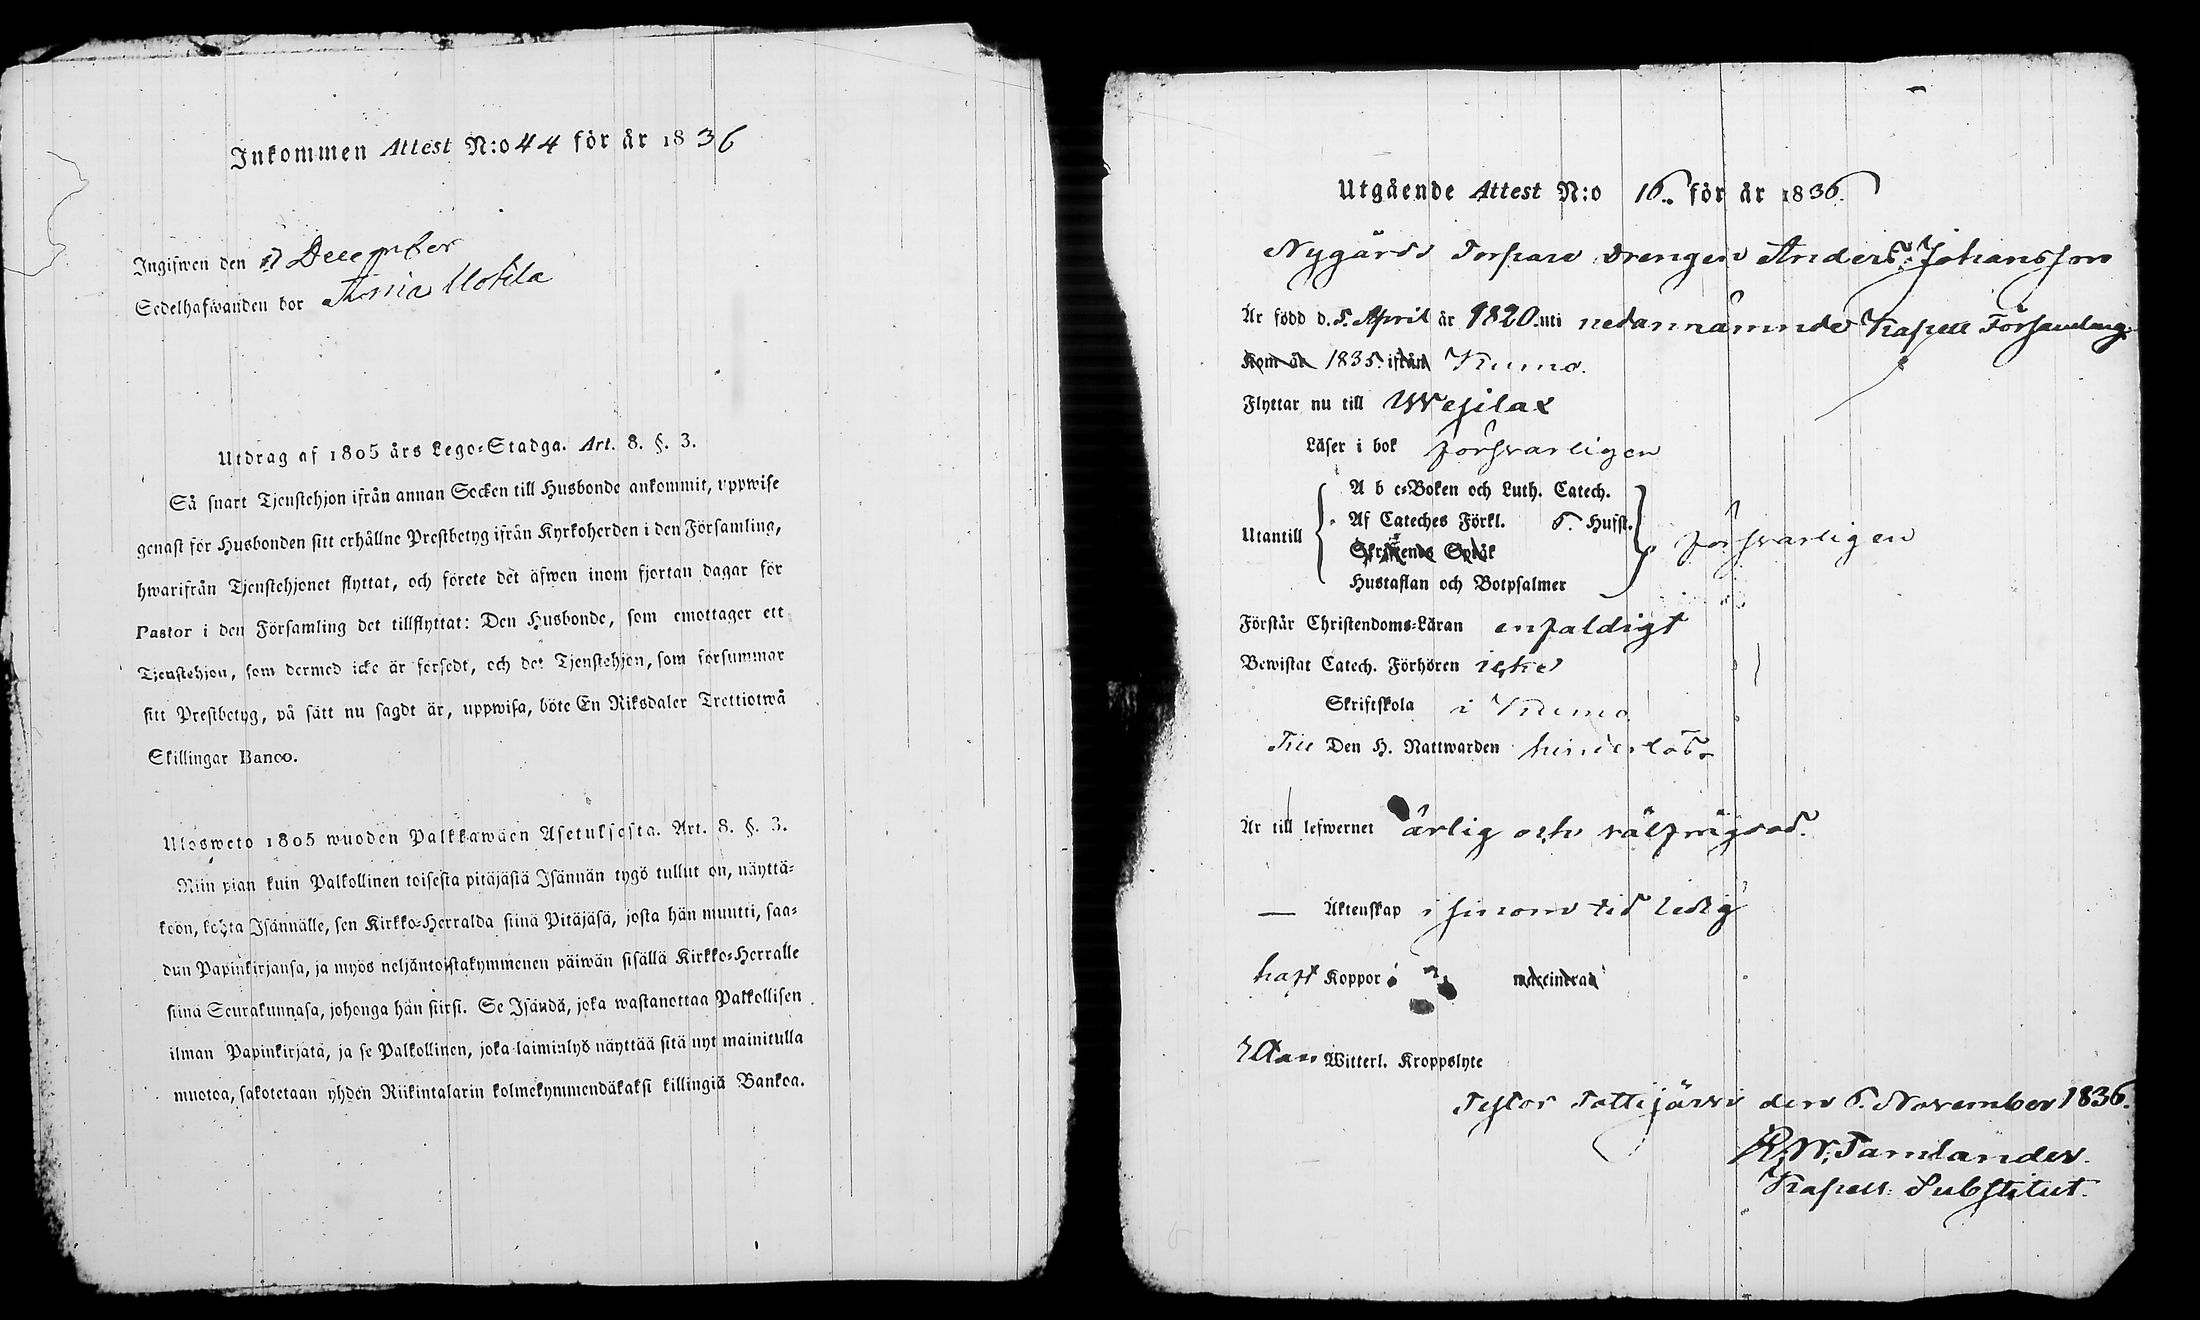 Inkommen Attest N:o 44 för år 1836
Ingifwen den 17 December
Sedelhafwanden bor
Utdrag af 1805 års Lego-Stadga. Art. 8. §. 3.
Så snart Tjenstehjon ifrån annan Socken till Husbonde ankommit, uppwise
genast för Husbonden sitt erhållne Prestbetyg ifrån Kyrkoherden i den Församling,
hwarifrån Tjenstehjonet flyttat, och förete det äfwen inom fjortan dagar för
Pastor i den Församling det tillflyttat: Den Husbonde, som emottager ett
Tjenstehjon, som dermed icke är försedt, och det Tjenstehjon, som försummar
sitt Prestbetyg, på sätt nu sagdt är, uppwisa, böte En Riksdaler Trettiotwå
Skillingar Banco.
Ulosweto 1805 wuoden Palkkawäen Asetuksesta. Art. 8. §. 3.
Niin pian kuin Palkollinen toisesta pitäjästä Isännän tygö tullut on, näyttä-
köön, kohta Isännälle, sen Kirkko-Herralda siinä Pitäjäsä, josta hän muutti, saa-
dun Papinkirjansa, ja myös neljäntoistakymmenen päiwän sisällä Kirkko-Herralle
siinä Seurakunnasa, johonga hän siirsi. Se Isändä, joka wastanottaa Palkollisen
ilman Papinkirjatä, ja se Palkollinen, joka laiminlyö näyttää sitä nyt mainitulla
muotoa, sakotetaan yhden Riikintalarin kolmekymmendäkaksi killingiä Bankoa.
Utgående Attest N:o 16. för år 1836.
Nygårds Torpare drengen Anders Johansson
Är född d. 5. April år 1820. uti nedannämnde Kapell Församling
Kom år 1835. ifrån Kumo.
Flyttar nu till Wesilax
Läser i bok försvarligen
A b c-Boken och Luth. Catech.
Utantill Af Cateches Förkl. 6. Hufst. försvarligen
Skriftens Språk
Hustaflan och Botpsalmer
Förstår Christendoms-Läran enfaldigt
Bewistat Catech. Förhören icke
Skriftskola i Kumo
Till Den H. Nattwarden hinderlös.
Är till lefwernet ärlig och välfrigdad.
— Äktenskap i sinom tid ledig
haft Koppor vaccinerad
Utan Witterl. Kroppslyte
Testor Tottijärvi den 6. November 1836.
R. W. Tamlander.
Kapell: Substitut.